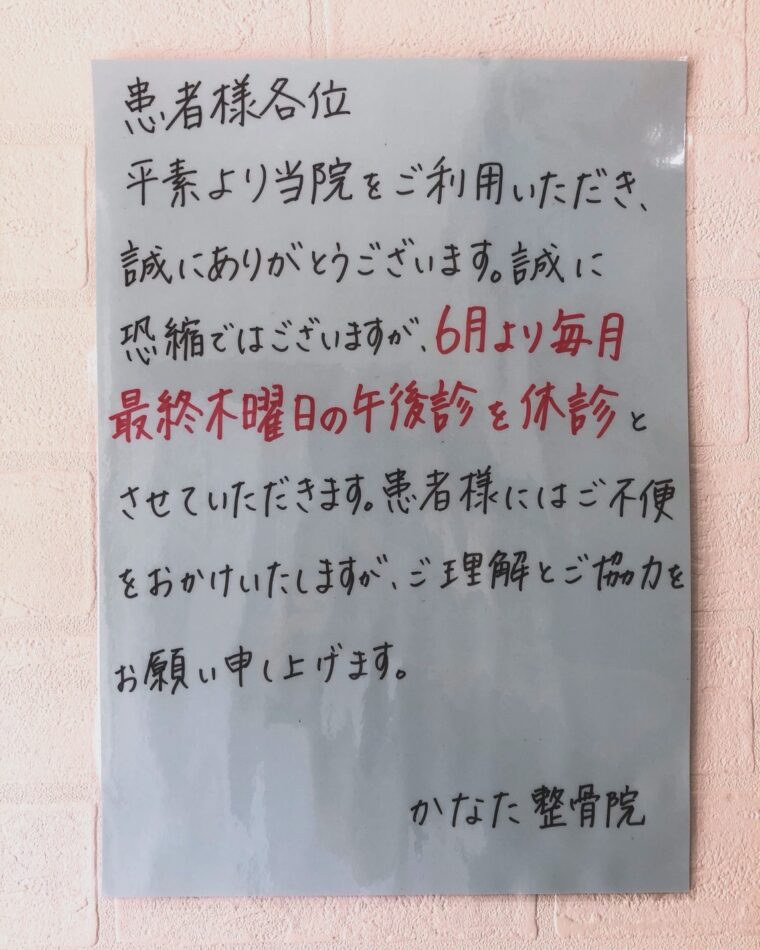 患者様各位
平素より当院をご利用いただき、
誠にありがとうございます。誠に
恐縮ではございますが、6月より毎月
最終木曜日の午後診を休診と
させていただきます。患者様にはご不便
をおかけいたしますが、ご理解とご協力を
お願い申し上げます。
かなた整骨院